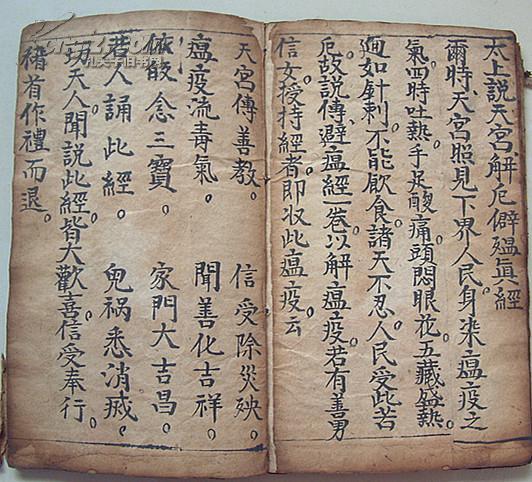 太上說天宮解厄僻瘟真經
爾時天宮照見下界人民。身染瘟疫之
氣。四時吐熱。手足酸痛。頭悶眼花。五藏盛熱。
迴如針刺。不能飲食。諸天不忍人民受此苦
厄。故說傳避瘟經一卷以解瘟疫。若有善男
信女授持經者。即收此瘟疫。云
天宮傳善教。 信受除災殃。
瘟疫流毒氣。 聞善化吉祥。
依嚴念三寶。 家門大吉昌。
若人誦此經。 鬼禍悉消滅。
功天人聞說此經。皆大歡喜。信受奉行。
稽首作禮而退。